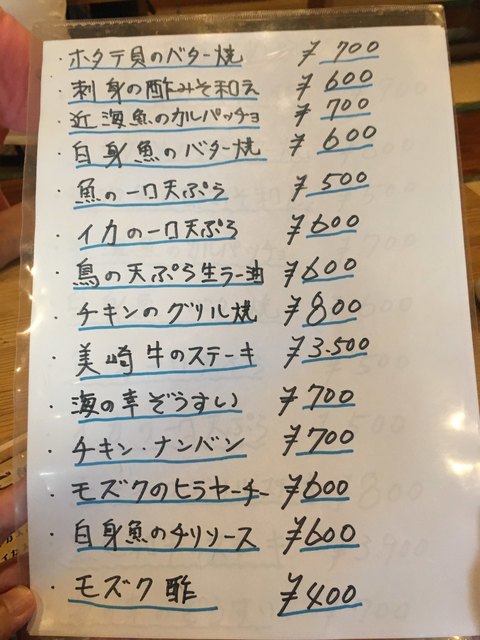 ・ホタテ貝のバター焼 ¥700
・刺身の酢みそ和え ¥600
・近海魚のカルパッチョ ¥700
・白身魚のバター焼 ¥600
・魚の一口天ぷら ¥500
・イカの一口天ぷら ¥600
・鳥の天ぷら生ラー油 ¥600
・チキンのグリル焼 ¥800
・美崎牛のステーキ ¥3.500
・海の幸ぞうすい ¥700
・チキン・ナンバン ¥700
・モズクのヒラヤーチー ¥600
・白身魚のチリソース ¥600
・モズク酢 ¥400